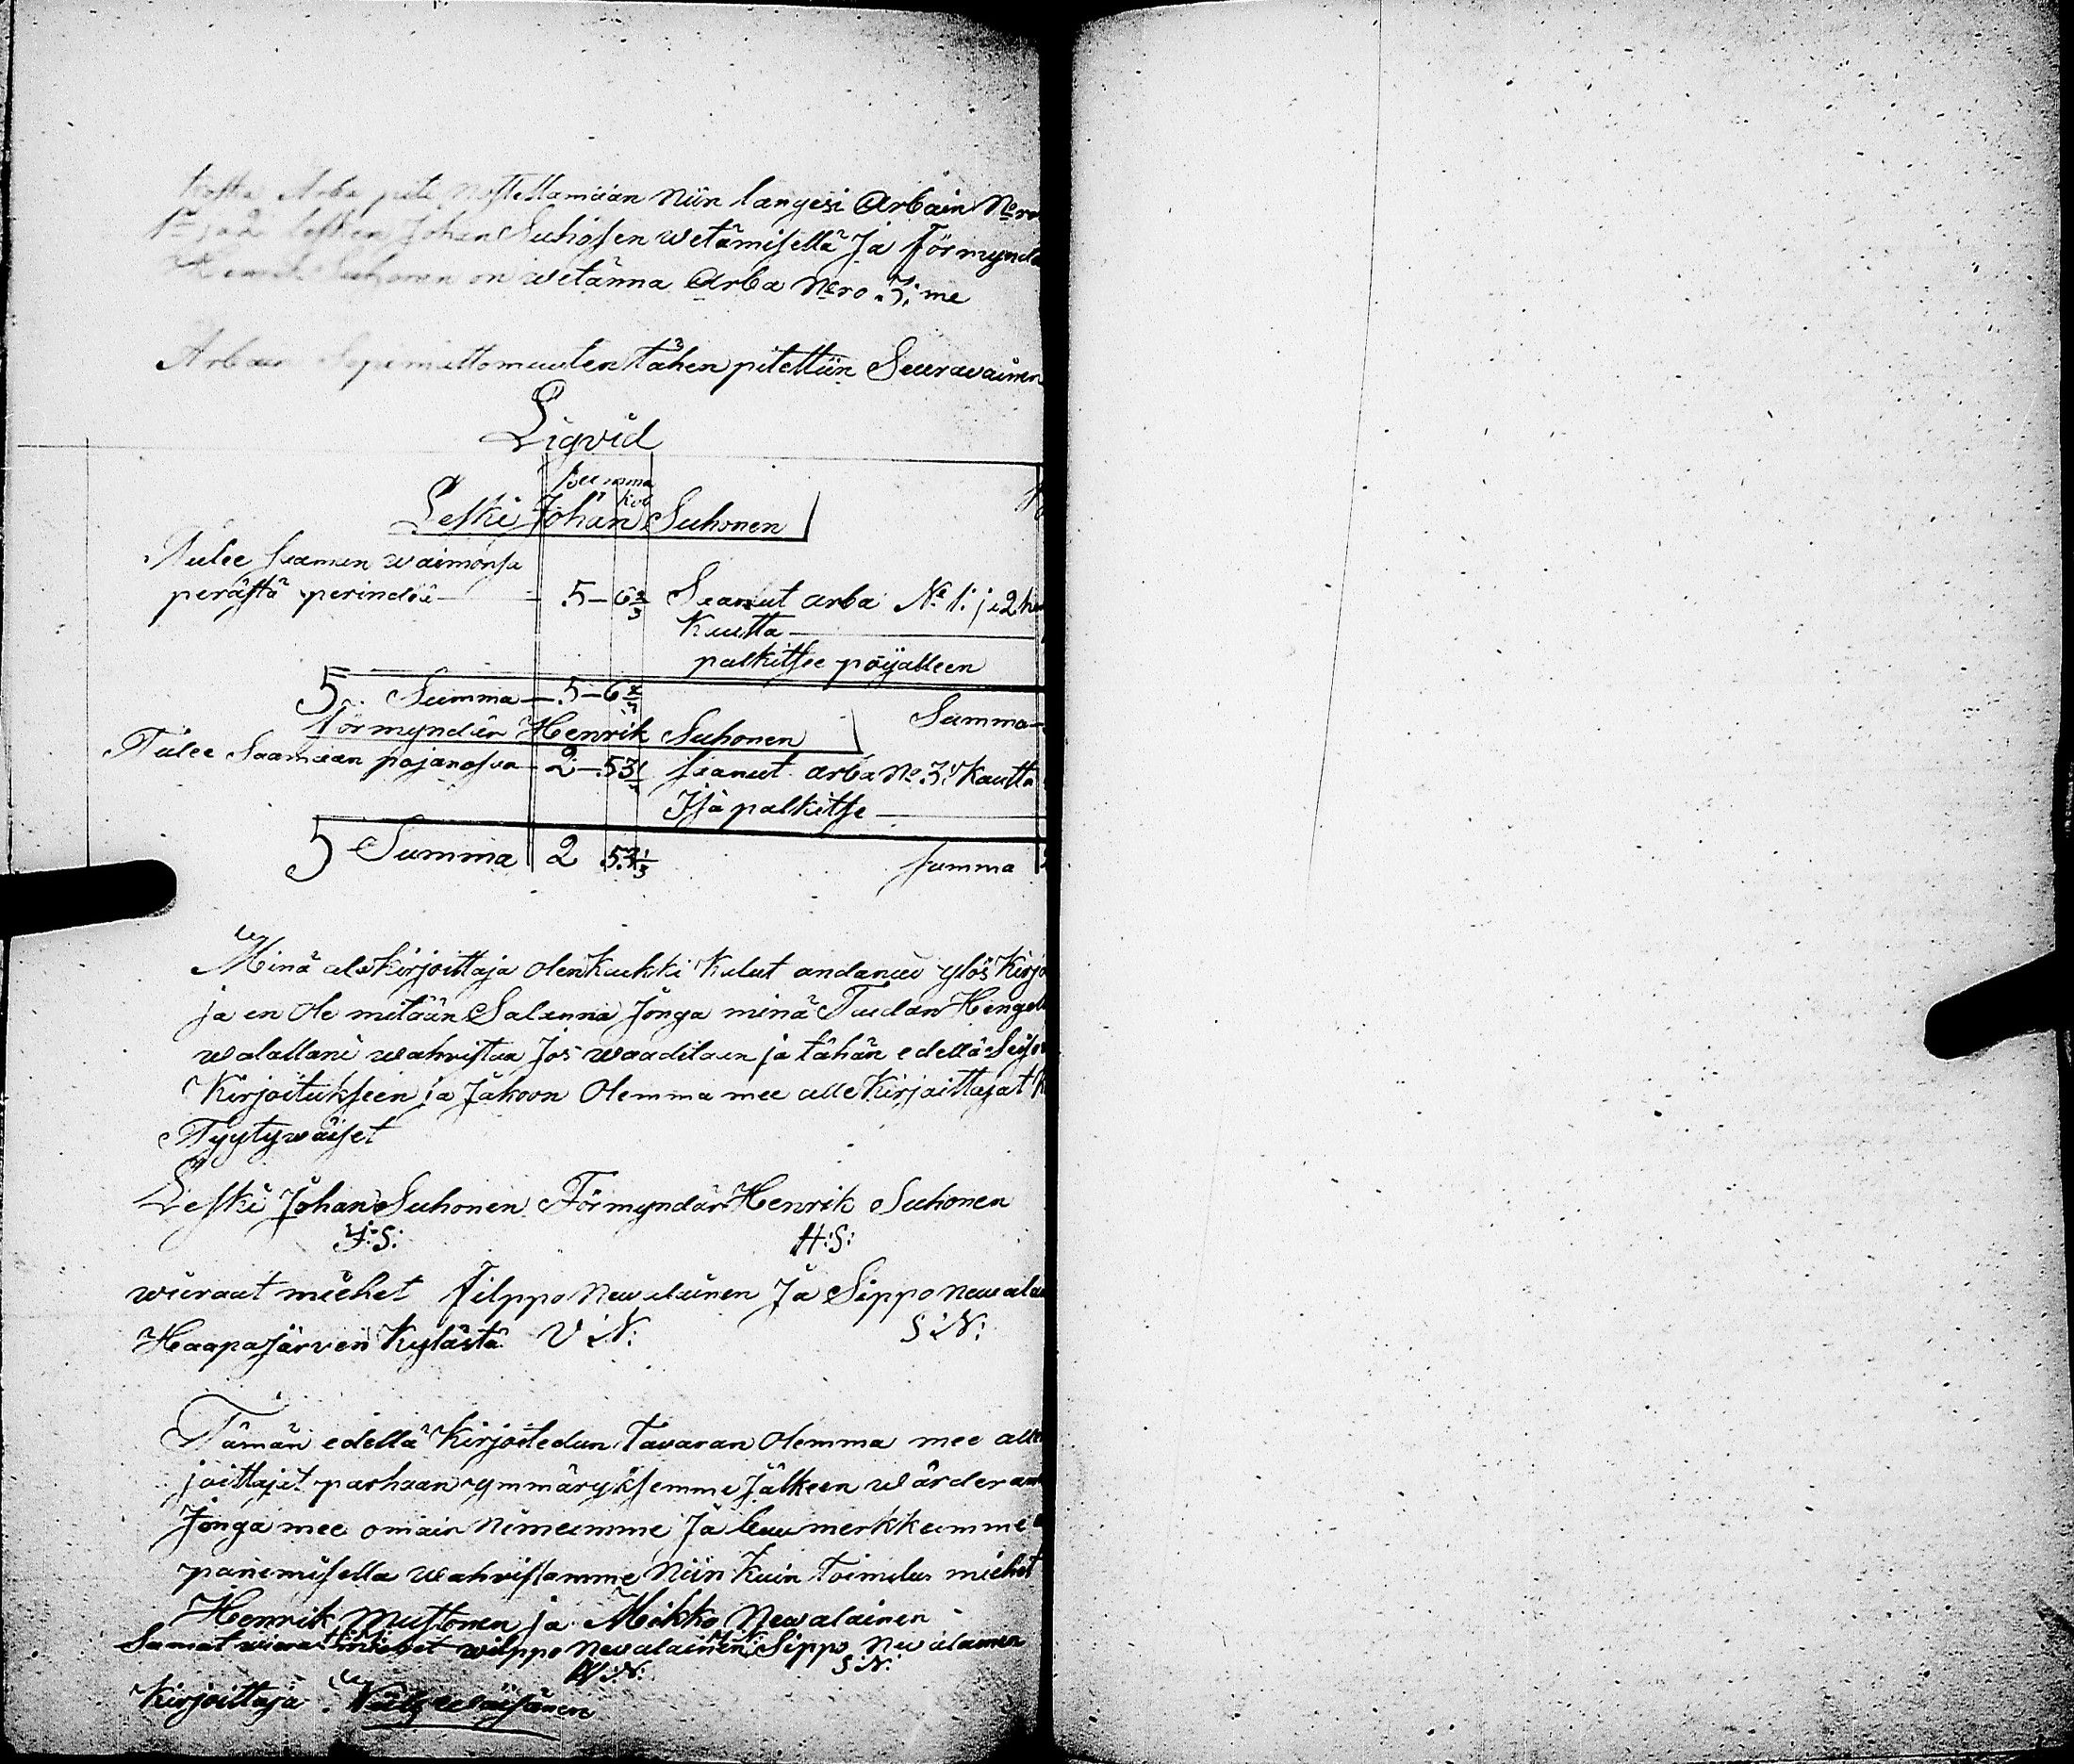 koska Arba piti nostettamaan Niin langesi Arbain Nero
1 ja 2 lesken Johan Suhosen wetämisellä Ja Förmynda
Henrik Suhonen on wetänna Arba Nero 3: me
Arbain Sopimattomuuten tähen pitettiin Seuravainen
Liqvid
Summa
Kop
Leski Johan Suhonen
Tulee saaman waimonsa
perästä perindöä — 5 — 6 2/3 Saanut arba No 1: ja 2
Kautta
palkitsee pojalleen
S Summa — 5 — 6 2/3 Summa
Förmyndär Henrik Suhonen
Tulee Saamaan pojanosa — 2 — 53 1/3 saanut arba No 3: Kautta
Isä palkitse
S Summa 2 53 1/3 summa
Minä alekirjoittaja olen kaikki kalut andanu ylös Kirjo
ja en ole mitään Salanna Jonga minä Taidan Hengel
walallani wahvistaa Jos waaditaan ja tähän edellä Seiso
Kirjoitukseen ja Jakoon Olemma mee alle Kirjoittajat
Tyytywäiset
Leski Johan Suhonen Förmyndär Henrik Suhonen
J:S: H:S:
wieraat miehet Filppo Newalainen Ja Sippo Newalai
Haapajärven Kylästä V:N: S:N:
Tämän edellä Kirjoitedun Tavaran Olemma mee alle
joittajat parhaan ymmäryksemme Jälkeen wärderan
Jonga mee omain Nimeimme Ja buumerkkeimme
panemisella wahvistamme Niin Kuin Toimitus miehet
Henrik Mustonen ja Mikko Newalainen
Samat wieraat miehet wilppo Newalainen Sippo Newalainen
W:N: S:N:
Kirjoittaja